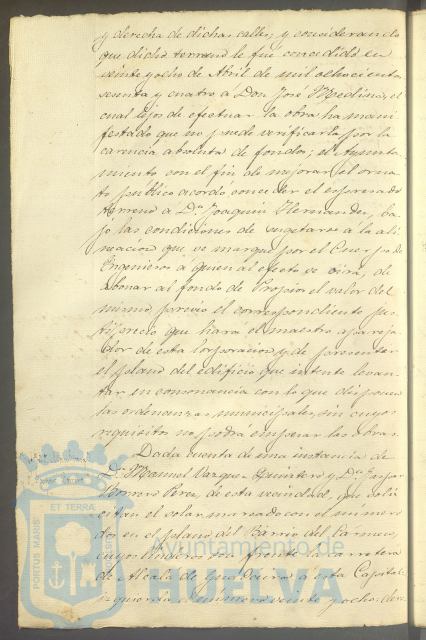 y derecha de dichas calles, y considerando
que dicho terreno le fue concedido en
veinte y ocho de Abril de mil ochocientos
sesenta y cuatro á Don José Medina, el
cual lejos de efectuar la obra ha mani
festado que no puede verificarla por la
carencia absoluta de fondos; el Ayunta
miento con el fin de mejorar el orna
to publico acordó conceder el espresado
terreno á Dn. Joaquin Hernandez, ba
jo las condiciones de sugetarse á la ali
neacion que se marque por el Cuerpo de
Ingenieros á quien al efecto se oirá, de
abonar al fondo de Propios el valor del
mismo, previo el correspondiente jus
tiprecio que hará el maestro apareja
dor de esta Corporacion y de presentar
el plano del edificio que intente levan
tar en consonancia con lo que disponen
las ordenanzas municipales, sin cuyos
requisitos no podrá empezar las obras.
Dada cuenta de una instancia de
Dn. Manuel Vazquez Quintero y Dn. Gaspar
Borrero Perez, de esta vecindad, que soli
citan el solar marcado con el número
dos en el plano del Barrio del Carmen,
cuyos linderos son frente carretera
de Alcalá de Guadaira á esta Capital
izquierda el número veinte y ocho, dere
PORTUS MARIS ET TERRAE CUSTODIA
Ayuntamiento de
HUELVA